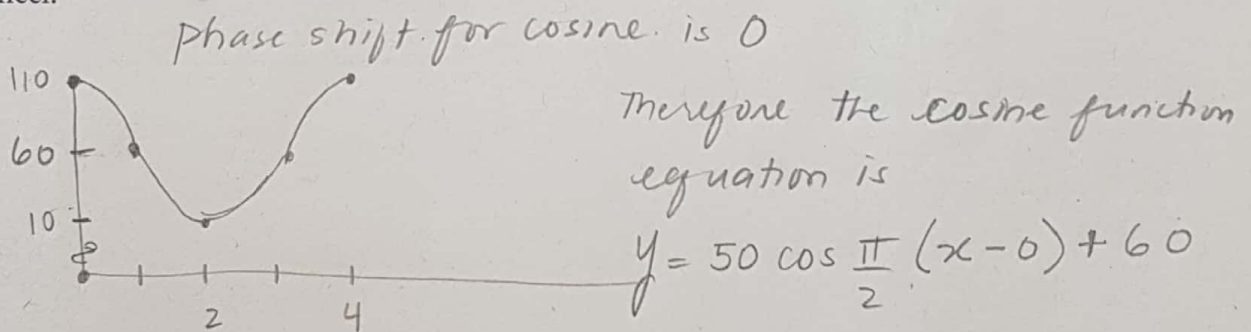 phase shift for cosine. is 0
110
60
10
2
4
Therefore the cosine function
equation is
y = 50 cos π/2 (x-0) + 60